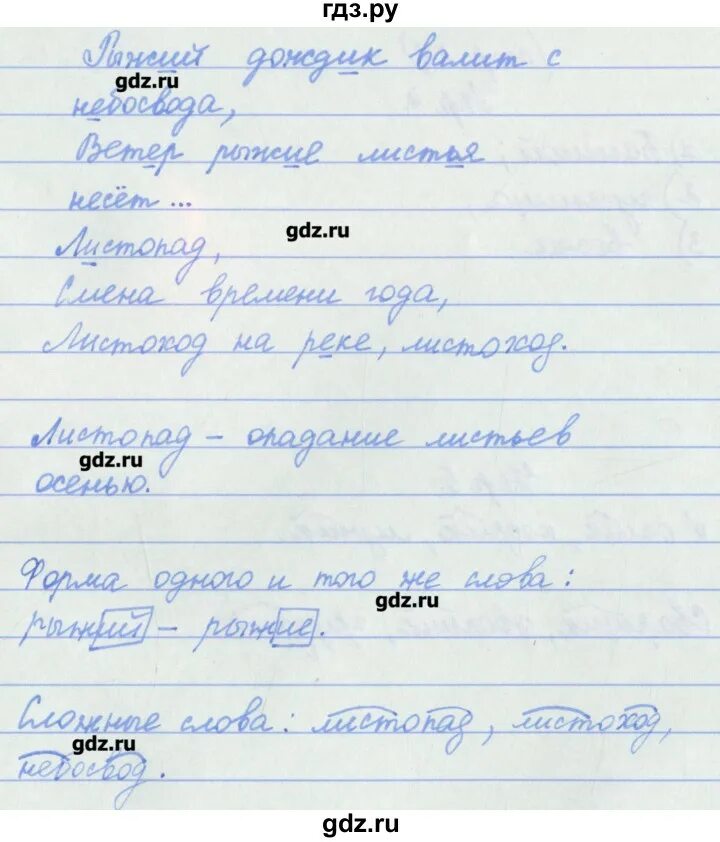 гдз.ру
Рыжий дождик валит с
gdz.ru
небосвода,
Ветер рыжие листья
несёт...
gdz.ru
Листопад,
Смена времени года,
Листоход на реке, листоход.
Листопад – опадание листьев
gdz.ru
осенью.
Форма одного и того же слова:
gdz.ru
рыжий – рыжие.
Сложные слова: листопад, листоход,
gdz.ru
небосвод.
gdz.ru